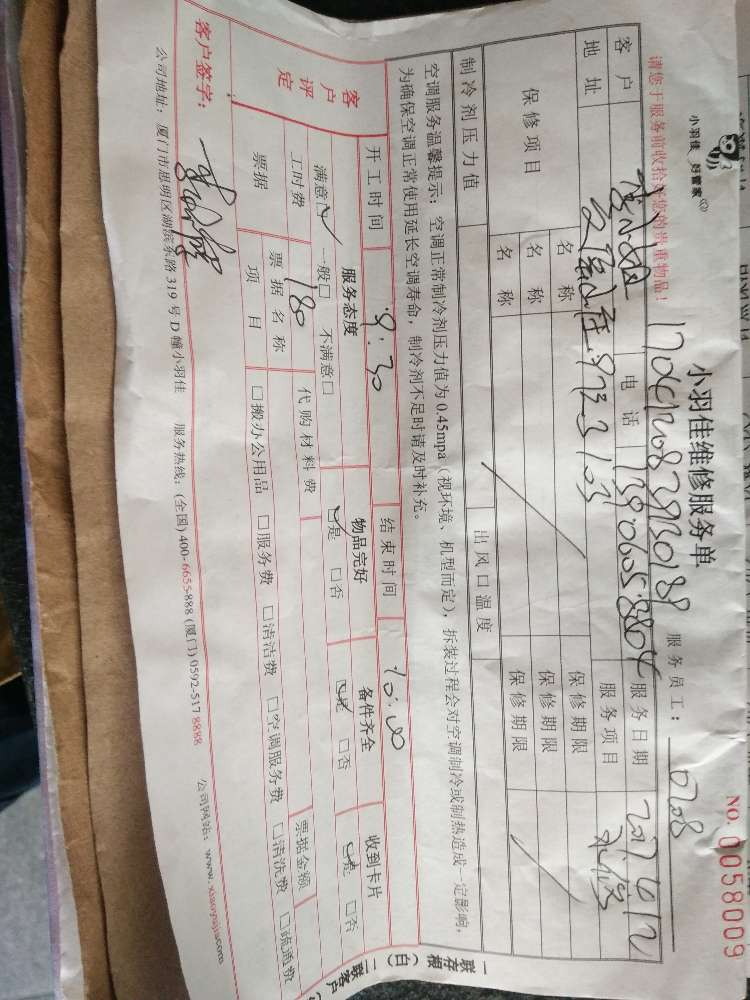 小羽佳 好管家
小羽佳维修服务单
NO. 0058009
请您于服务前收拾好您的贵重物品!
服务员工: 0708
客户 电话 服务日期 2017.6.12
地址 服务项目
保修项目 名称 保修期限
名称 保修期限
名称 保修期限
制冷剂压力值 出风口温度
空调服务温馨提示: 空调正常制冷剂压力值为0.45mpa (视环境、机型而定), 拆装过程会对空调制冷或制热造成一定影响,
为确保空调正常使用延长空调寿命, 制冷剂不足时请及时补充。
开工时间 9:30 结束时间 10:00
客户评定 服务态度 物品完好 备件齐全 收到卡片
满意□ 一般□ 不满意□ □是 □否 □是 □否 □是 □否
工时费 180 代购材料费 票据金额
票据 票据名称
项目 □搬办公用品 □服务费 □清洁费 □空调服务费 □清洗费 □疏通费
客户签字:
公司地址: 厦门市思明区湖滨东路319号D幢小羽佳 服务热线: (全国) 400-6655-888 (厦门) 0592-517 8888 公司网站: www.xiaoyujia.com
一联存根 (白) 二联客户